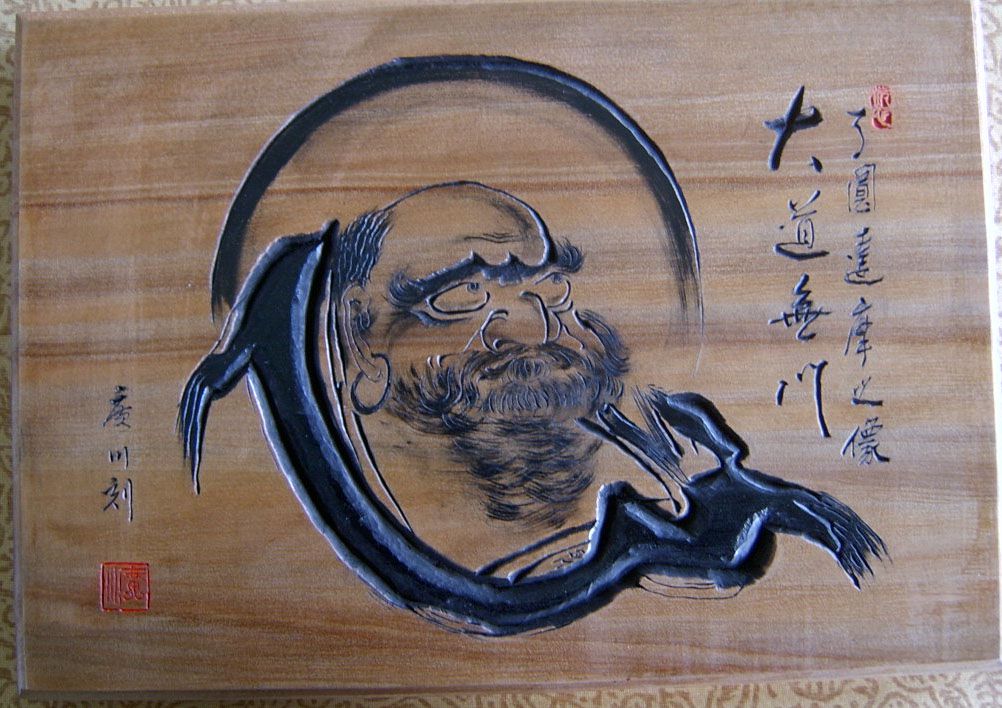 了圓達摩之像
大道無門
慶川刻